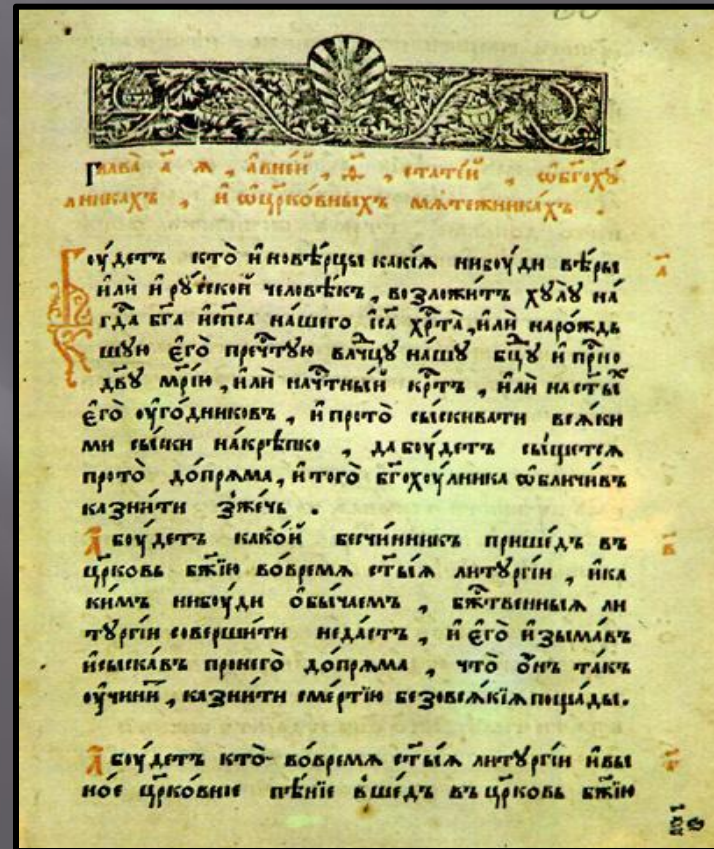 Глава̀ а҃ ꙗ , а в не́й , ѳ҃ , стате́й , ѡ бг҃охꙋ́
лникахъ , и҆ ѡ цр҃ко́вныхъ мѧте́жникахъ .
Боу́детъ кто̀ и҆новѣ́рцы какі́ѧ нибоу́ди вѣ́ры
и҆лѝ и҆ рꙋ́сской человѣ́къ , возложи́тъ хꙋлꙋ̀ на́
гдⷭ҇а бг҃а и҆ сп҃са на́шего і҆с҃а хрⷭ҇та̀ , и҆лѝ наро́ждь
шꙋю є҆го̀ пречⷭ҇тꙋю влⷣчцꙋ на́шꙋ бцⷣꙋ и҆ прⷭ҇но
дв҃ꙋ мр҃і́ю , и҆лѝ на чⷭ҇тны́й крⷭ҇тъ , и҆лѝ на ст҃ы́х
є҆го̀ оу҆го́дниковъ , и҆ про то̀ сы́скивати всѧ́ки
ми сы́ски на́крѣпко , да боу́детъ сы́щетсѧ
про то̀ до́прѧма , и҆ того̀ бг҃охоу́лника ѡ҆бличи́въ
казни́ти зже́чь .
А҆ боу́детъ како́й безчи́нникъ прише́дъ въ
цр҃ковь бж҃їю во́ времѧ ст҃ы́ѧ литꙋргі́и , и҆ ка
ки́мъ нибоу́ди ѻ҆бы́чаемъ , бжⷭ҇твенныѧ ли
тꙋргі́и соверши́ти не да́стъ , и҆ є҆го̀ и҆зыма́въ
и҆ сыска́въ про него̀ до́прѧма , что̀ ѻ҆́нъ та́къ
оу҆чини́т , казни́ти сме́ртїю безо всѧ́кїѧ поща́ды .
А҆ боу́детъ кто̀ во́ времѧ ст҃ы́ѧ литꙋргі́и и҆ в ы
но́е цр҃ко́вное пѣ́нїе вше́дъ въ цр҃ковь бж҃їю